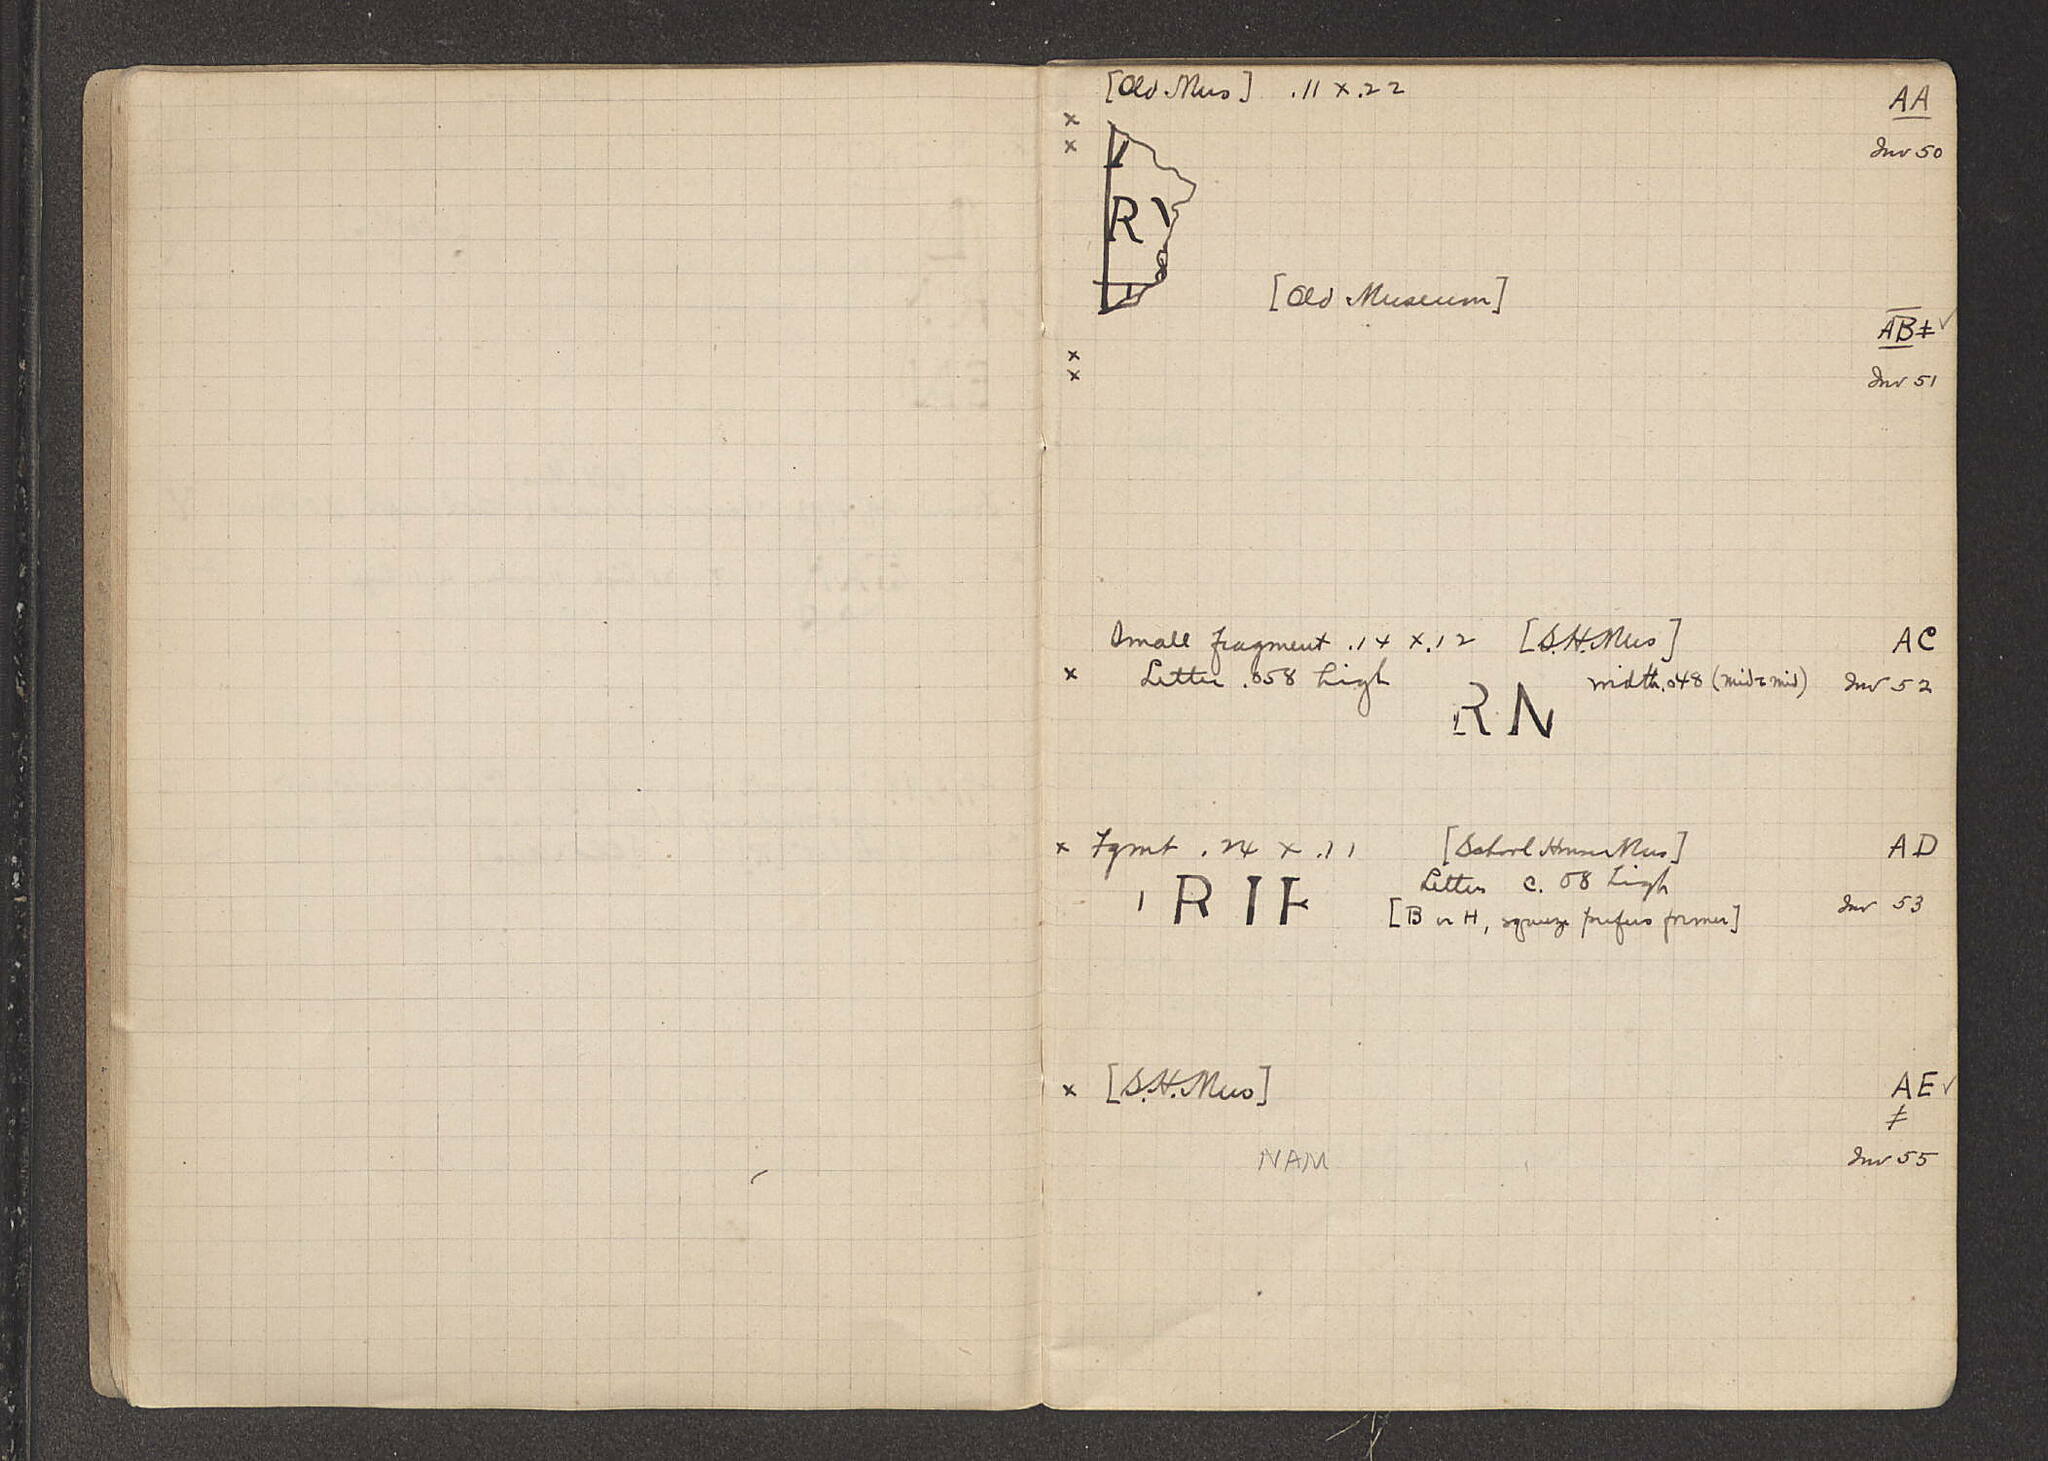 [Old Mus] .11 x .22 AA
x
x Inv 50
R
[Old Museum]
AB ‡ ✓
x
x Inv 51
Small fragment .14 x .12 [S.H. Mus] AC
x Letter .058 high width .048 (mid to mid) Inv 52
RN
x Fgmt .24 x .11 [School House Mus] AD
Letters c. 08 high
RIF
[B or H, squeeze prefers former] Inv 53
x [S.H. Mus] AE ✓
‡
NAM Inv 55